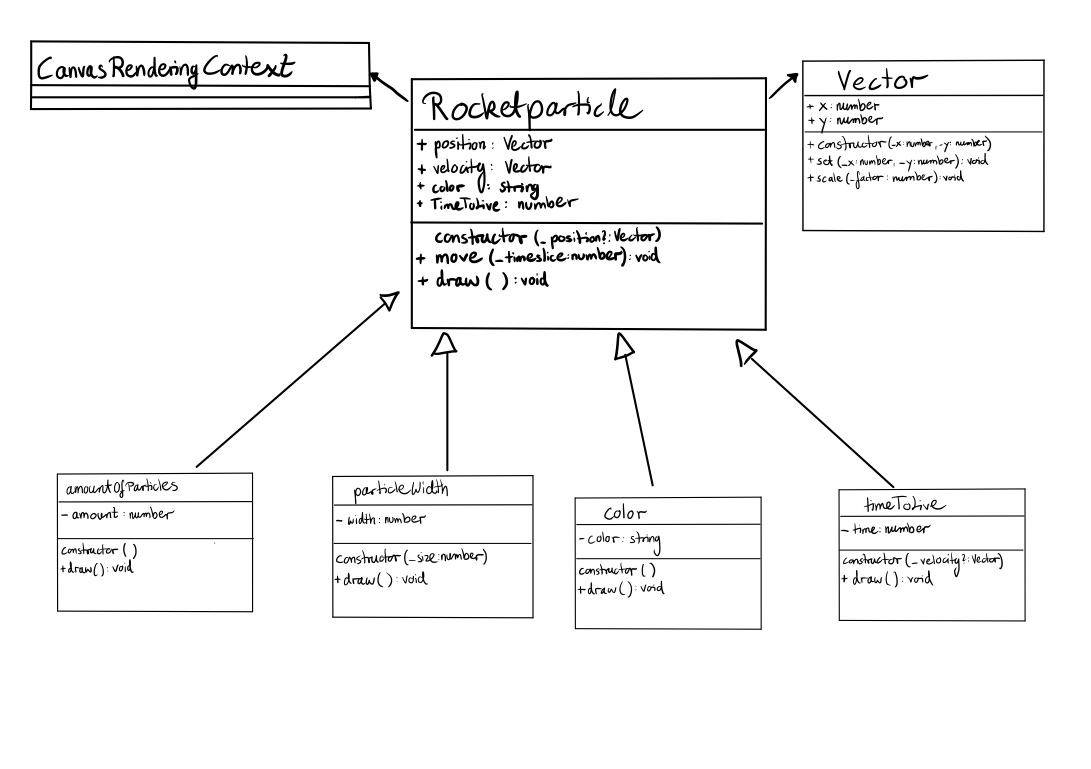 CanvasRenderingContext
Rocketparticle
+ position: Vector
+ velocity: Vector
+ color : string
+ TimeToLive: number
constructor (_position?: Vector)
+ move (_timeslice: number): void
+ draw ( ) : void
Vector
+ x: number
+ y: number
+ constructor (_x: number, _y: number)
+ set (_x: number, _y: number): void
+ scale (_factor: number): void
amountOfParticles
- amount: number
constructor ( )
+ draw( ): void
particleWidth
- width: number
constructor (_size: number)
+ draw( ): void
color
- color: string
constructor ( )
+ draw( ): void
timeToLive
- time: number
constructor (_velocity?: Vector)
+ draw( ): void